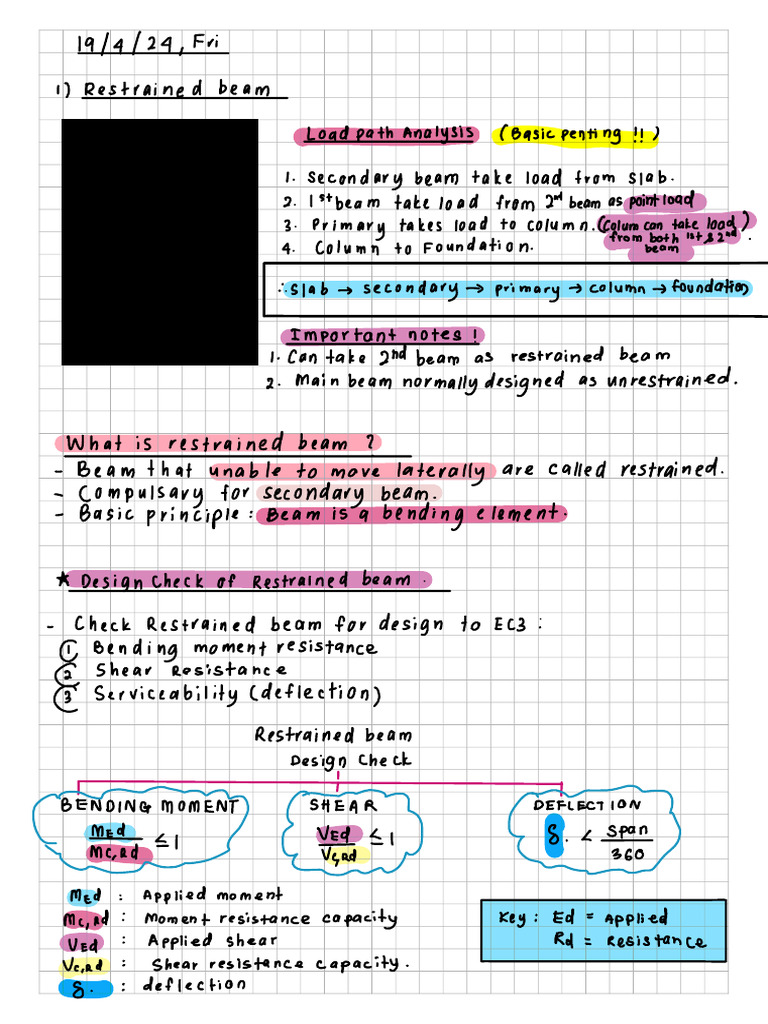 19/4/24, Fri
1) Restrained beam
Load path Analysis (Basic penting !!)
1. Secondary beam take load from slab.
2. 1st beam take load from 2nd beam as point load
3. Primary takes load to column. (Colum can take load from both 1st & 2nd beam).
4. Column to Foundation.
∴ Slab → secondary → primary → column → foundation
Important notes !
1. Can take 2nd beam as restrained beam
2. Main beam normally designed as unrestrained.
What is restrained beam ?
- Beam that unable to move laterally are called restrained.
- Compulsary for secondary beam.
- Basic principle : Beam is a bending element.
★ Design Check of Restrained beam.
- Check Restrained beam for design to EC3 :
① Bending moment resistance
② Shear Resistance
③ Serviceability (deflection)
Restrained beam
Design Check
BENDING MOMENT
MEd / Mc,Rd ≤ 1
SHEAR
VEd / Vc,Rd ≤ 1
DEFLECTION
δ. < span / 360
MEd : Applied moment
Mc,Rd : Moment resistance capacity
VEd : Applied shear
Vc,Rd : Shear resistance capacity.
δ. : deflection
Key : Ed = Applied
Rd = Resistance